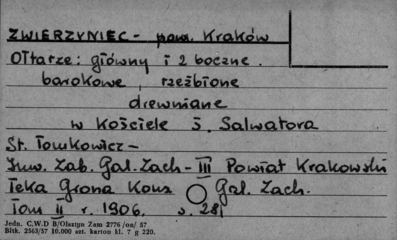 ZWIERZYNIEC - pow. Kraków
Ołtarze: główny i 2 boczne.
barokowe, rzeźbione
drewniane
w Kościele Ś. Salwatora
St. Tomkowicz -
Inw. Zab. Gal. Zach - III Powiat Krakowski
Teka Grona Kons Gal. Zach.
Tom II r. 1906. s. 281
Jedn. C.W.D B/Olsztyn Zam 2776/on/ 57
Bltk. 2563/57 10.000 szt. karton kl. 7 g 220.